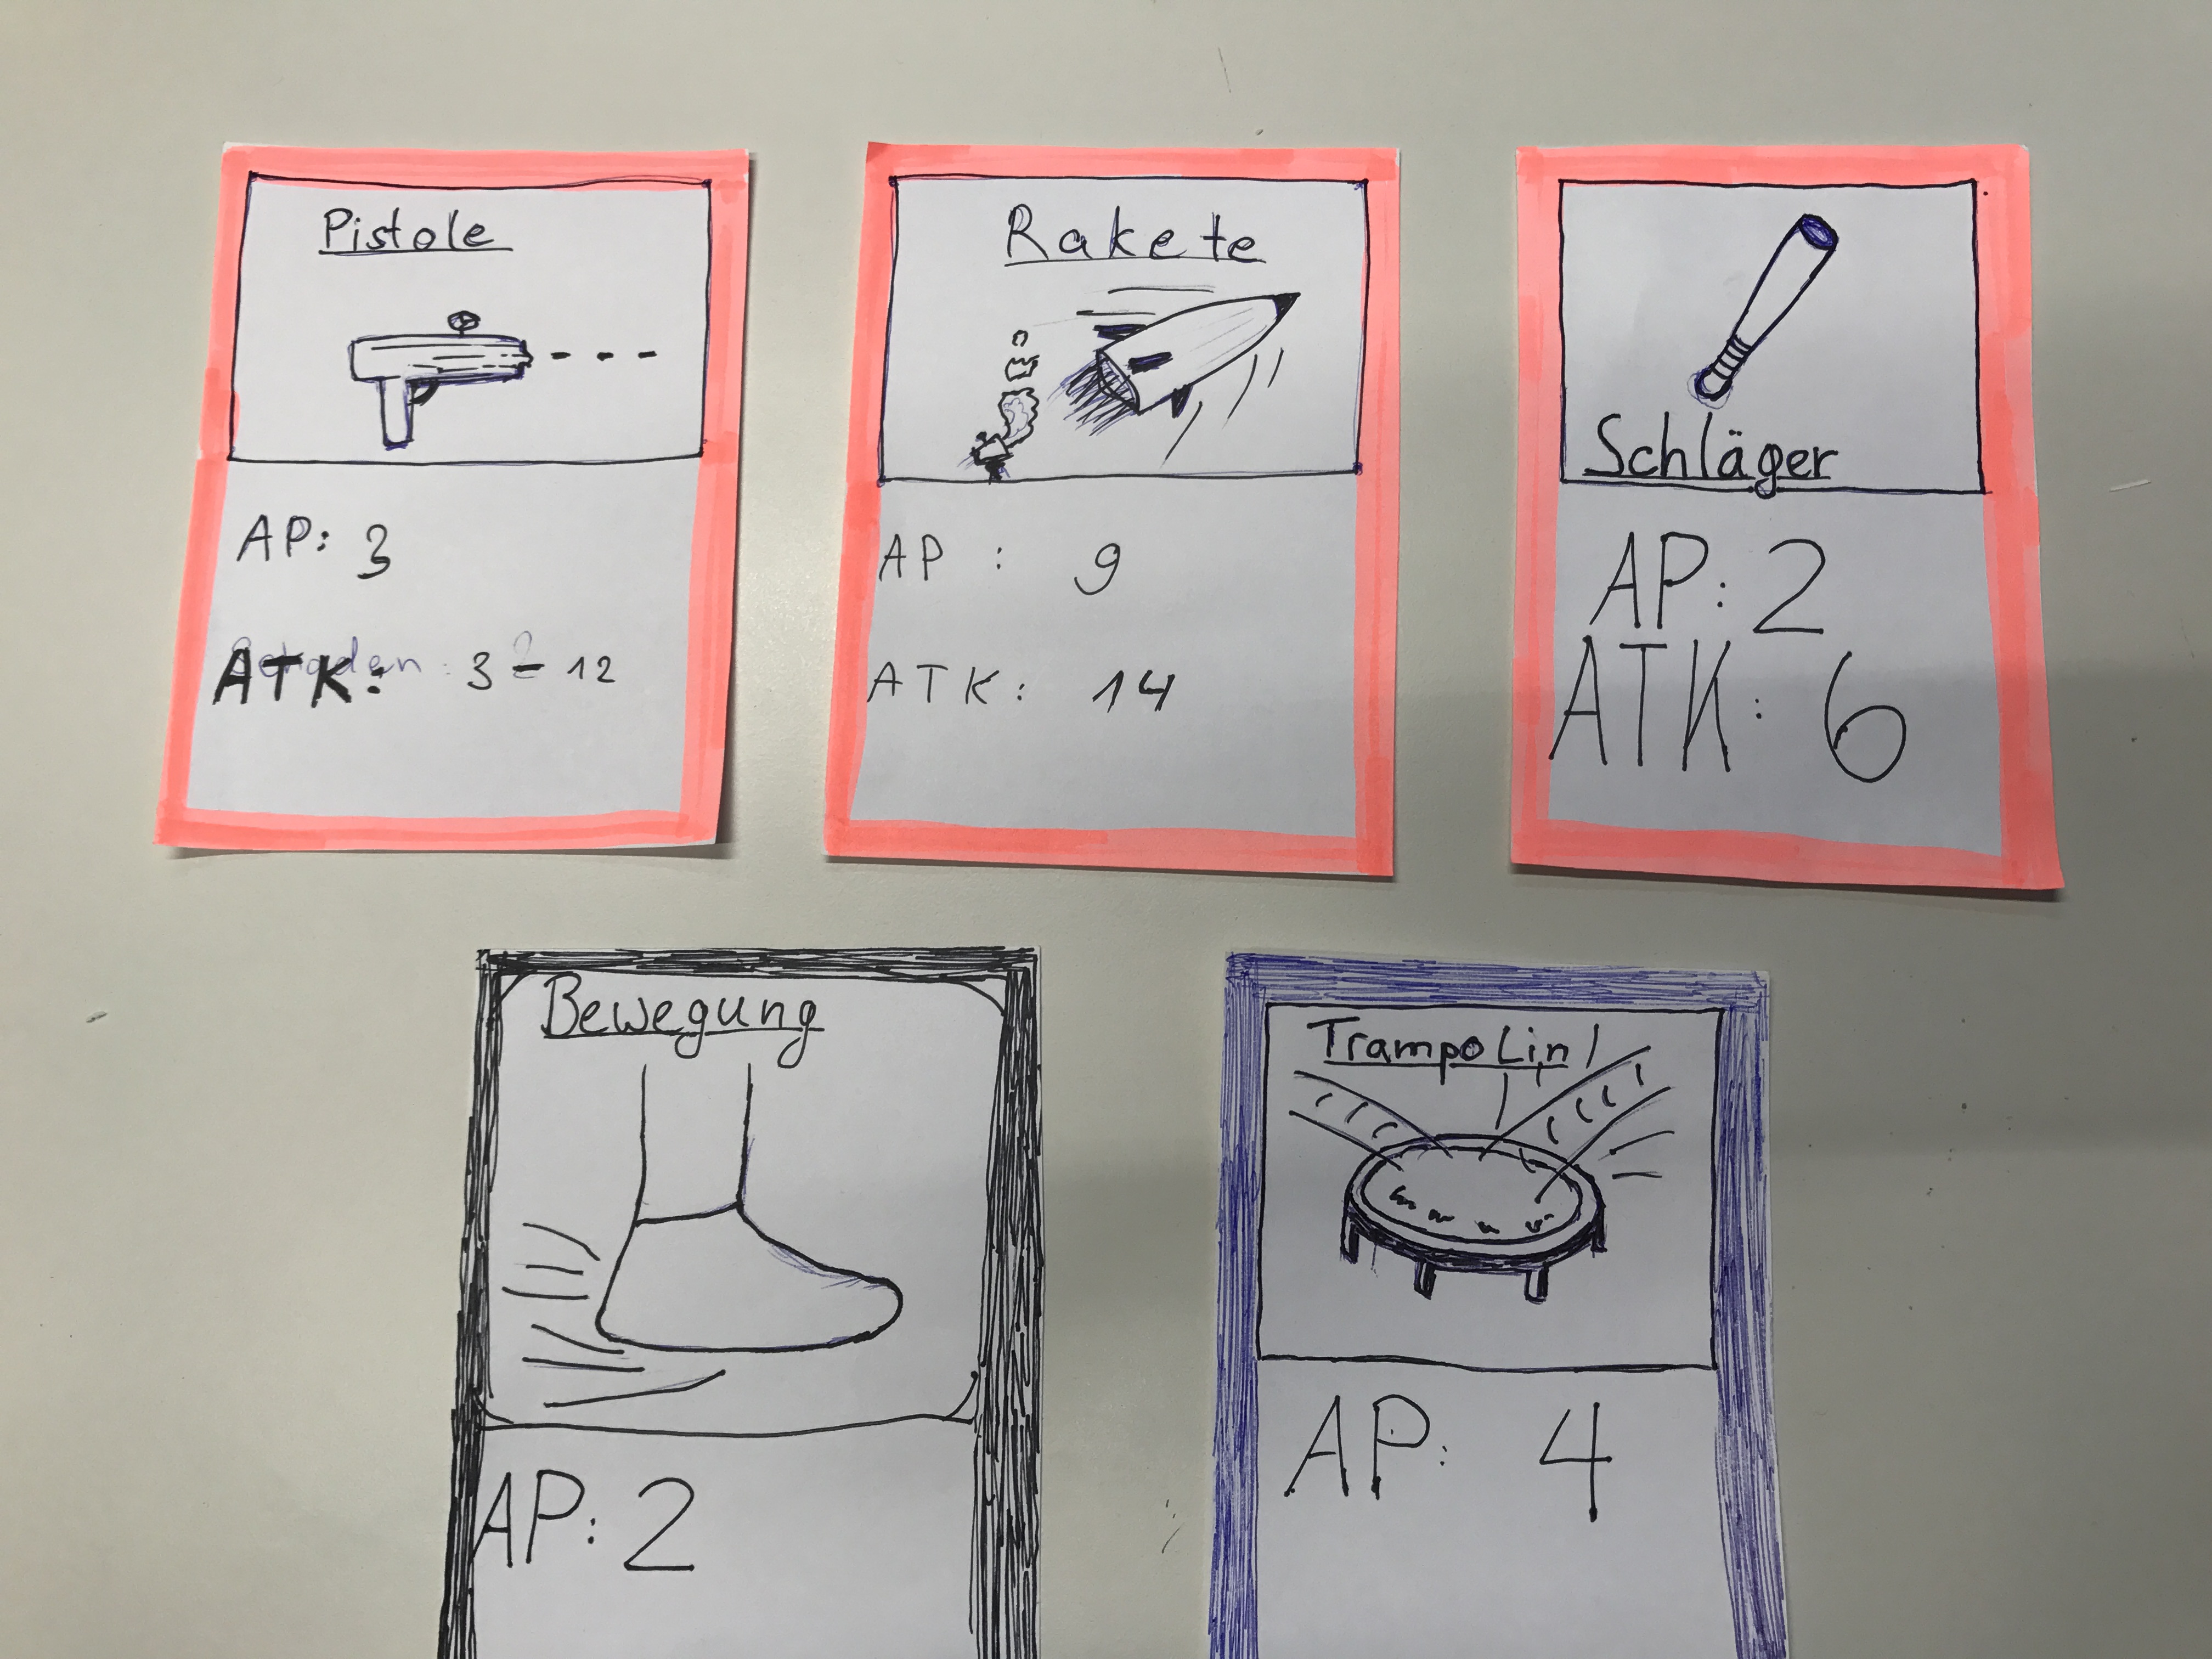 Pistole
AP: 3
ATK: 3 - 12
Rakete
AP : 9
ATK: 14
Schläger
AP: 2
ATK: 6
Bewegung
AP: 2
Trampolin
AP: 4